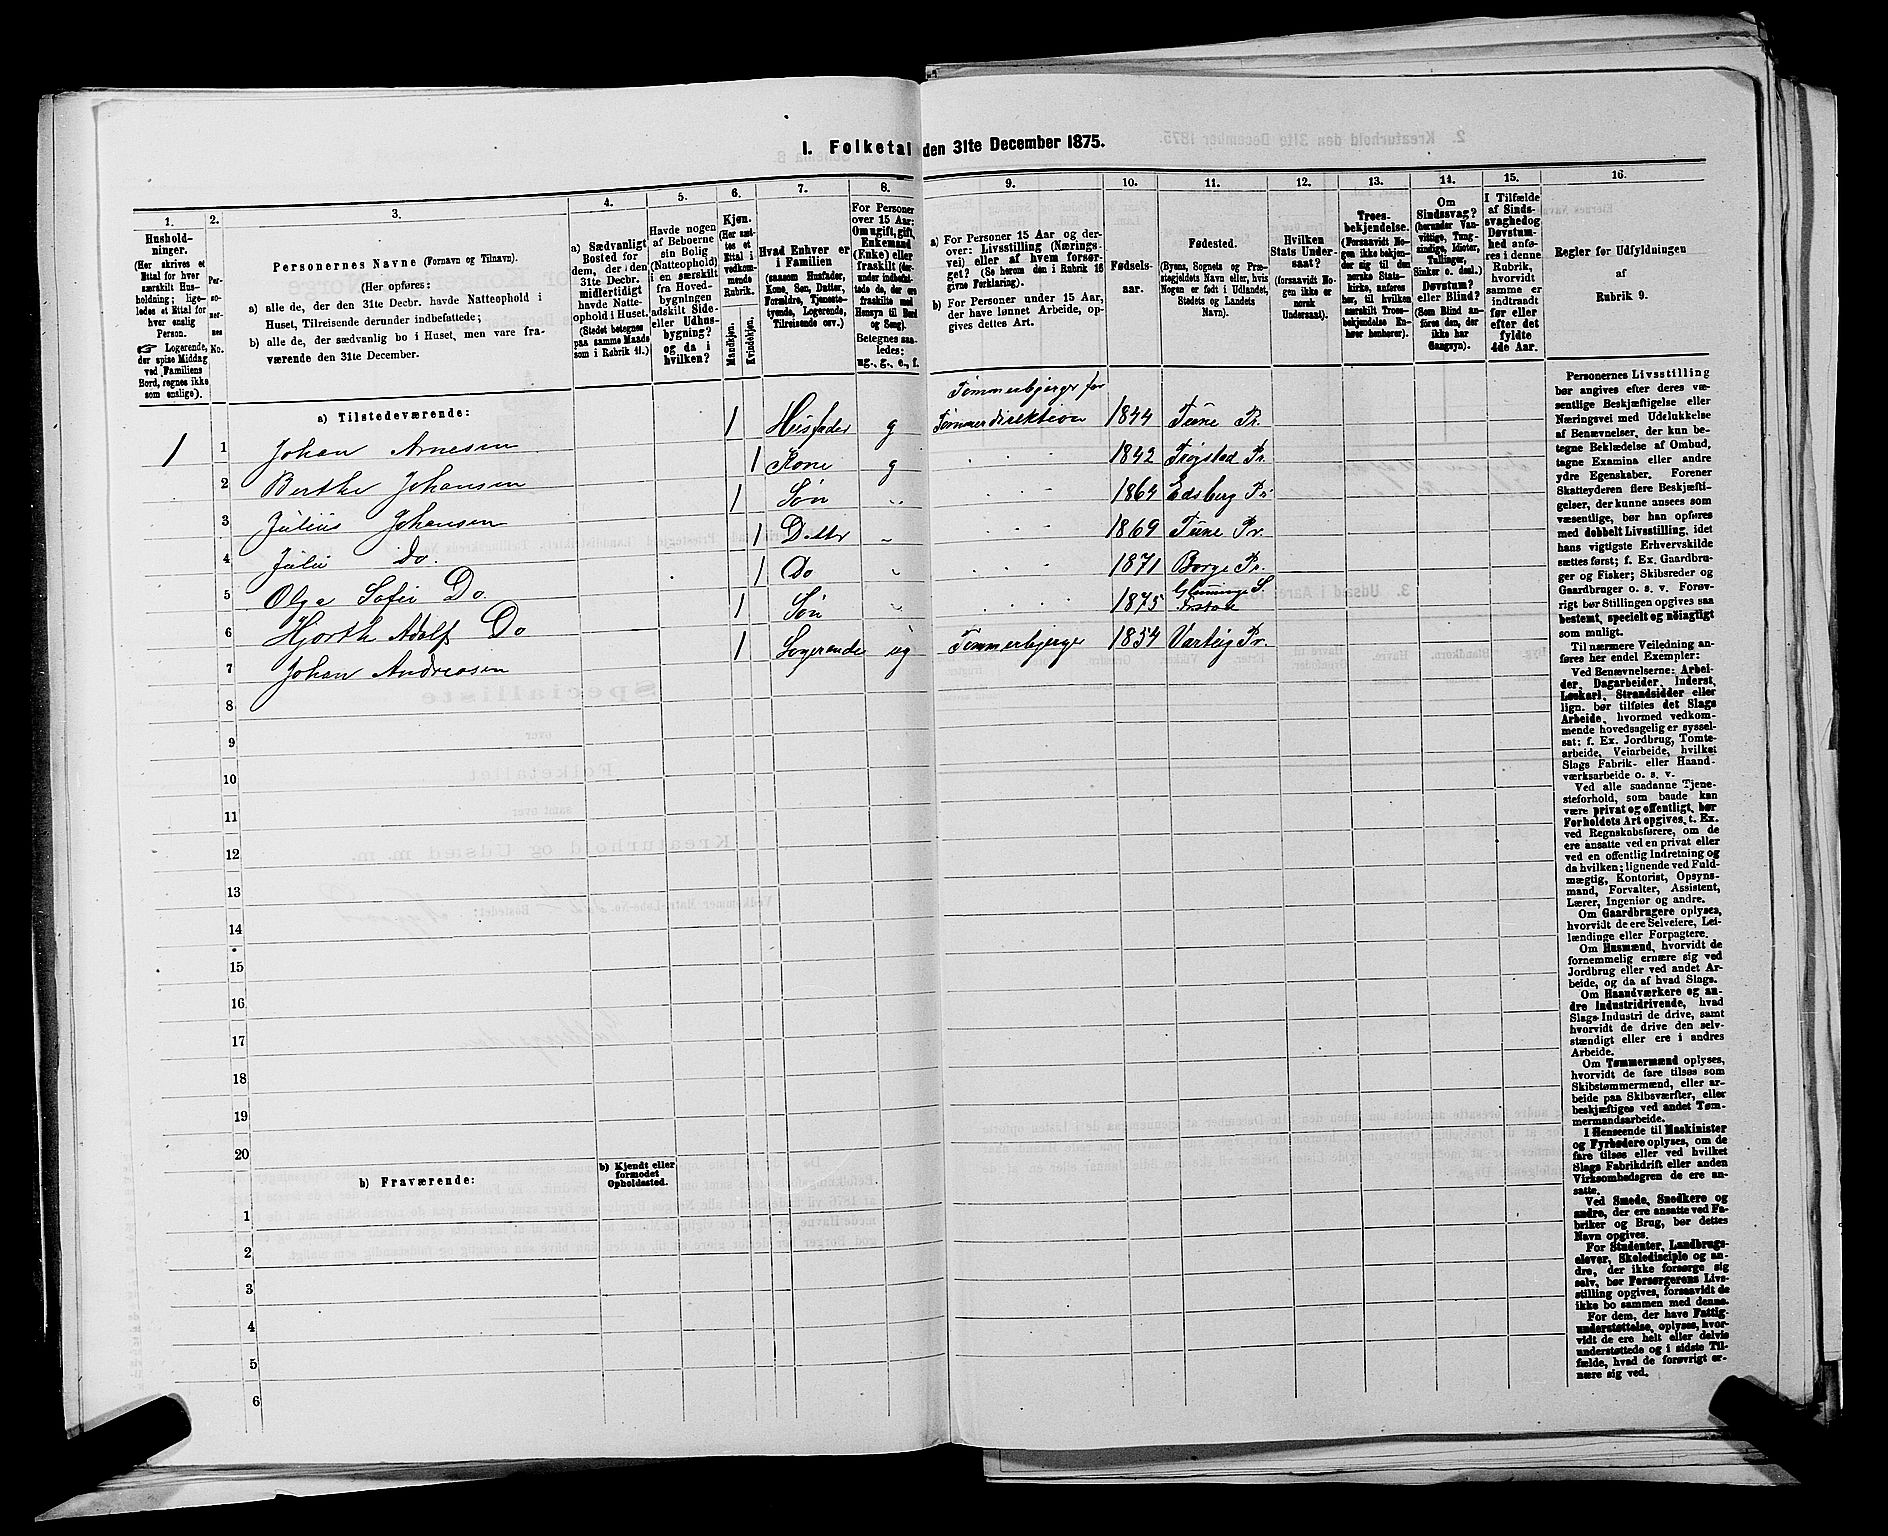 I. Folketal den 31te December 1875.
1. 2. 3. 4. 5. 6. 7. 8. 9. 10. 11. 12. 13. 14. 15. 16.
Hushold-
ninger.
(Her skrives et
Ettal for hver
særskilt Hus-
holdning; lige-
ledes et Ettal for
hver enslig
Person.
☞ Logerende,
der spise Middag
ved Familiens
Bord, regnes ikke
som enslige).
Per-
so-
ner-
nes
No.
Personernes Navne (Fornavn og Tilnavn).
(Her opføres:
a) alle de, der den 31te Decbr. havde Natteophold i
Huset, Tilreisende derunder indbefattede;
b) alle de, der sædvanlig bo i Huset, men vare fra-
værende den 31te December.
a) Sædvanligt
Bosted for
dem, der den
31te Decbr.
midlertidigt
havde Natte-
ophold i Huset.
(Stedet betegnes
paa samme Maade
som i Rubrik 11.)
Havde nogen
af Beboerne
sin Bolig
(Natteophold)
i en særskilt
fra Hoved-
bygningen
adskilt Side-
eller Udhus-
bygning?
og da i
hvilken?
Kjøn.
(Her sæt-
tes et
Ettal i
vedkom-
mende
Rubrik.
Mandkjøn.
Kvindekjøn.
Hvad Enhver er
i Familien
(saasom Husfader,
Kone, Søn, Datter,
Forældre, Tjeneste-
tyende, Logerende,
Tilreisende osv.)
For Personer
over 15 Aar:
Om ugift, gift,
Enkemand
(Enke) eller
fraskilt (der-
under indbefat-
tede de, der ere
fraskilte med
Hensyn til Bord
og Seng).
Betegnes saa-
ledes:
ug., g., e., f.
a) For Personer 15 Aar og der-
over: Livsstilling (Nærings-
vei) eller af hvem forsør-
get? (Se herom den i Rubrik 16
givne Forklaring).
b) For Personer under 15 Aar,
der have lønnet Arbeide, op-
gives dettes Art.
Fødsels-
aar.
Fødested.
(Byens, Sognets og Præ-
stegjeldets Navn eller, hvis
Nogen er født i Udlandet,
Stedets og Landets
Navn).
Hvilken
Stats Under-
saat?
(forsaavidt No-
gen ikke er
norsk
Undersaat).
Troes-
bekjendelse.
(Forsaavidt No-
gen ikke bekjen-
der sig til den
norske Stats-
kirke, anføres
her, til hvilken
særskilt Troes-
bekjendelse En-
hver henhører).
Om
Sindssvag?
(herunder Van-
vittige, Tung-
sindige, Idioter,
Tullinger,
Sinker o. desl.)
Døvstum?
eller Blind?
(Som Blind an-
føres den, der
ikke har
Gangsyn).
I Tilfælde
af Sinds-
svaghed og
Døvstum-
hed anfø-
res i denne
Rubrik,
hvorvidt
samme er
indtraadt
før eller
efter det
fyldte
4de Aar.
Regler før Udfyldningen
af
Rubrik 9.
a) Tilstedeværende:
Tømmerbjerger for
1 1 Johan Arnesen 1 Husfader g Tømmerdirektion 1844 Tune Pr.
2 Berthe Johansen 1 Kone g 1842 Trøgstad Pr.
3 Julius Johansen 1 Søn 1864 Edsberg Pr
4 Julie Do. 1 Datter 1869 Tune Pr.
5 Olga Sofie Do 1 Do 1871 Borge Pr.
6 Hjorth Adolf Do 1 Søn 1875 Glemminge S.
7 Johan Andreasen 1 Logerende ug Tømmerbjerger 1854 Varteig Pr.
8
9
10
11
12
13
14
15
16
17
18
19
20
b) Fraværende:
b) Kjendt eller
formodet
Opholdssted.
1
2
3
4
5
6
Personernes Livsstilling
bør angives efter deres væ-
sentlige Beskjæftigelse eller
Næringsvei med Udelukkelse
af Benævnelser, der kun be-
tegne Beklædelse af Ombud,
tagne Examina eller andre
ydre Egenskaber. Forener
Skatteyderen flere Beskjæfti-
gelser, der kunne ansees som
væsentlige, bør han opføres
med dobbelt Livsstilling, idet
hans vigtigste Erhvervskilde
sættes først; f. Ex. Gaardbru-
ger og Fisker; Skibsreder og
Gaardbruger o. s. v. Forøv-
rigt bør Stillingen opgives saa
bestemt, specielt og nøiagtigt
som muligt.
Til nærmere Veiledning an-
føres her endel Exempler:
Ved Benævnelserne: Arbei-
der, Dagarbeider, Inderst,
Løskarl, Strandsidder eller
lign. bør tilføies det Slags
Arbeide, hvormed vedkom-
mende hovedsagelig er syssel-
sat; f. Ex. Jordbrug, Tomte-
arbeide, Veiarbeide, hvilket
Slags Fabrik- eller Haand-
værksarbeide o. s. v.
Ved alle saadanne Tjene-
steforhold, som baade kan
være privat og offentligt, bør
Forholdets Art opgives, t. Ex.
ved Regnskabsførere, om de
ere ansatte ved en privat eller
ved en offentlig Indretning og
da hvilken; lignende ved Fuld-
mægtig, Kontorist, Opsyns-
mand, Forvalter, Assistent,
Lærer, Ingeniør og andre.
Om Gaardbrugere oplyses,
hvorvidt de ere Selveiere, Lei-
lændinge eller Forpagtere.
Om Husmænd, hvorvidt de
fornemmelig ernære sig ved
Jordbrug eller ved andet Ar-
beide, og da af hvad Slags.
Om Haandværkere og an-
dre Industridrivende, hvad
Slags Industri de drive, samt
hvorvidt de drive den selv-
stændigt eller ere i andres
Arbeide.
Om Tømmermænd oplyses,
hvorvidt de fare tilsøs som
Skibstømmermænd, eller ar-
beide paa Skibsværfter, eller
beskjæftiges ved andet Tøm-
mermandsarbeide.
I Henseende til Maskinister
og Fyrbødere oplyses, om de
fare tilsøs eller ved hvilket
Slags Fabrikdrift eller anden
Virksomhedsgren de ere an-
satte.
Ved Smede, Snedkere og
andre, der ere ansatte ved Fa-
briker og Brug, bør dettes
Navn opgives.
For Studenter, Landbrugs-
elever, Skoledisciple og an-
dre, der ikke forsørge sig
selv, bør Forsørgerens Livs-
stilling opgives, forsaavidt de
ikke bo sammen med denne.
For dem, der have Fattig-
understøttelse, oplyses, hvor-
vidt de ere helt eller delvis
understøttede og i sidste Til-
fælde, hvad de forøvrigt er-
nære sig ved.